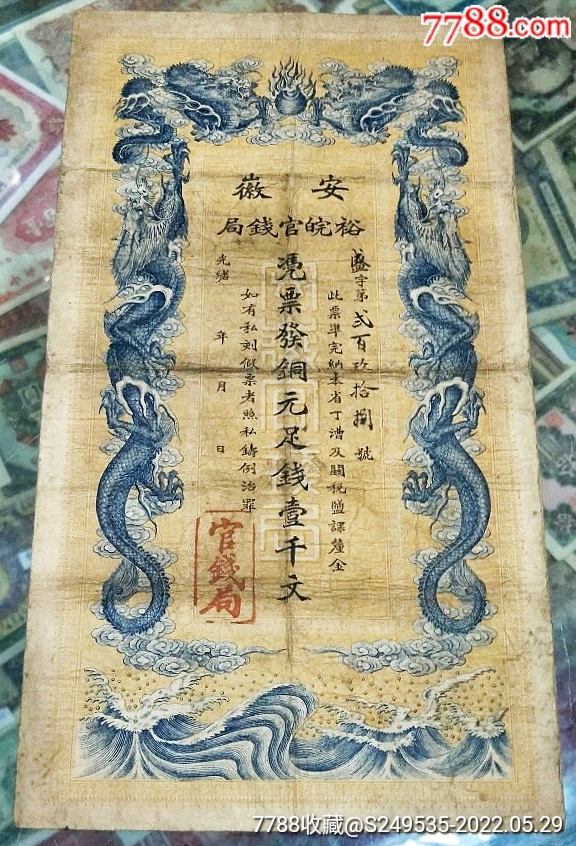 7788.com
安徽
裕皖官錢局
盛字第弍百玖拾捌號
此票準完納本省丁漕及關稅鹽課釐金
憑票發銅元足錢壹千文
如有私刻假票者照私鑄例治罪
光緒 年 月 日
官錢局
7788收藏@S249535-2022.05.29